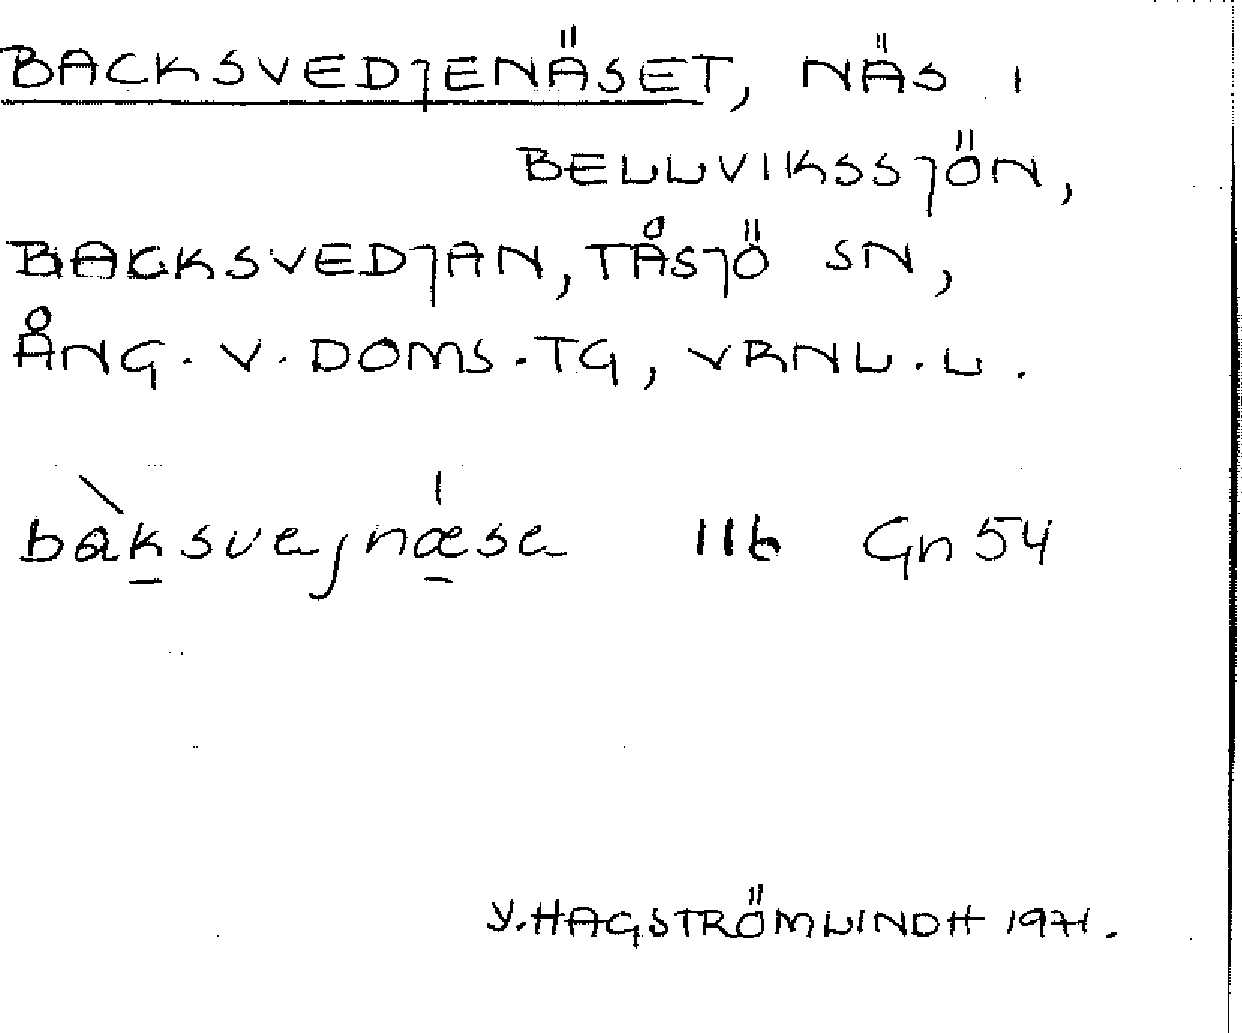 BACKSVEDJENÄSET, NÄS I
BELLVIKSSJÖN,
BACKSVEDJAN, TÅSJÖ SN,
ÅNG. V. DOMS. TG, VRNL. L.
bàksvejnæse 11b Gn 54
Y. HAGSTRÖM LINDH 1971.